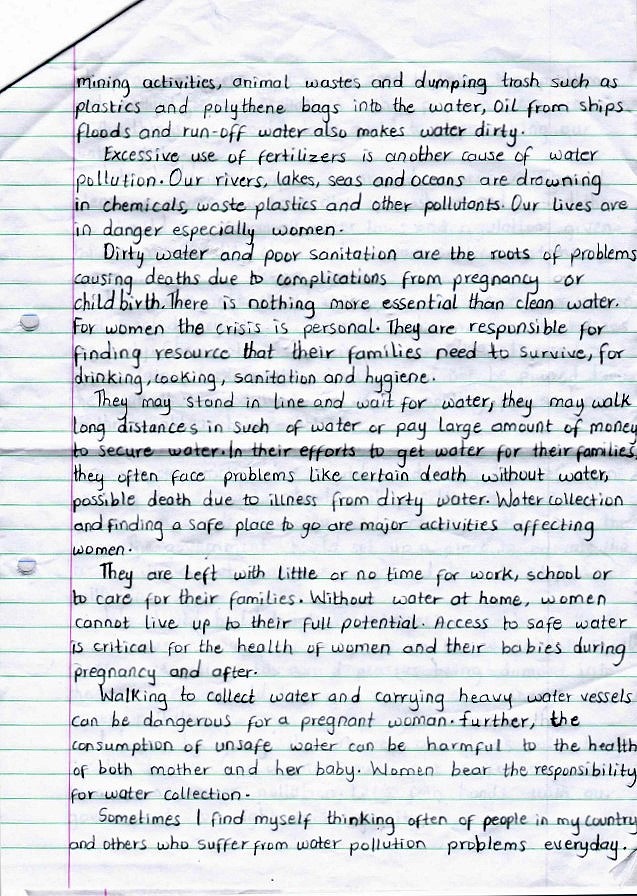 mining activities, animal wastes and dumping trash such as
plastics and polythene bags into the water, Oil from ships
floods and run-off water also makes water dirty.
Excessive use of fertilizers is another cause of water
pollution. Our rivers, lakes, seas and oceans are drowning
in chemicals, waste plastics and other pollutants. Our lives are
in danger especially women.
Dirty water and poor sanitation are the roots of problems
causing deaths due to complications from pregnancy or
child birth. There is nothing more essential than clean water.
For women the crisis is personal. They are responsible for
finding resource that their families need to survive, for
drinking, cooking, sanitation and hygiene.
They may stand in line and wait for water, they may walk
long distances in such of water or pay large amount of money
to secure water. In their efforts to get water for their families,
they often face problems like certain death without water,
possible death due to illness from dirty water. Water collection
and finding a safe place to go are major activities affecting
women.
They are left with little or no time for work, school or
to care for their families. Without water at home, women
cannot live up to their full potential. Access to safe water
is critical for the health of women and their babies during
pregnancy and after.
Walking to collect water and carrying heavy water vessels
can be dangerous for a pregnant woman. further, the
consumption of unsafe water can be harmful to the health
of both mother and her baby. Women bear the responsibility
for water collection.
Sometimes I find myself thinking often of people in my country
and others who suffer from water pollution problems everyday.